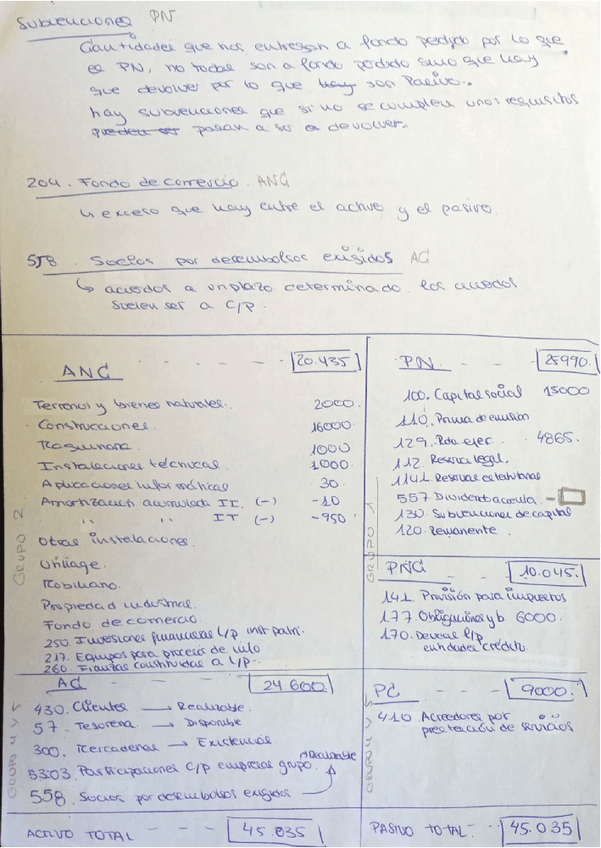 Subvenciones PN
Cantidades que nos entregan a fondo perdido por lo que
es PN, no todas son a fondo perdido sino que hay
que devolver por lo que hay son Pasivo.
hay subvenciones que si no se cumplen unos requisitos
pueden ser pasan a ser a devolver.
204. Fondo de comercio. ANC
↳ exceso que hay entre el activo y el pasivo.
558. Socios por desembolsos exigidos AC
↳ acuerdos a un plazo determinado. los acuerdos
suelen ser a C/P.
ANC - - - - - 20.435
Terrenos y bienes naturales. 2000
Construcciones 16000
Maquinaria 1000
Instalaciones técnicas 1000
Aplicaciones informáticas 30
Amortización acumulada II (-) -10
" " IT (-) -950
Otras instalaciones.
Utillage.
Mobiliario.
Propiedad industrial.
Fondo de comercio
250. Inversiones financieras l/p inst patri.
217. Equipos para proceso de info
260. Fianzas constituidas a l/p
GRUPO 2
PN - - - 25990.
100. Capital social 15000
110. Prima de emisión
129. Rdo ejer. 4865.
112. Reserva legal.
1141. Reservas estatutarias
557. Dividendo a cuenta. -
130. Subvenciones de capital
120. Remanente.
GRUPO 1
PNC - - 10.045.
141. Provisión para impuestos
177. Obligaciones y b 6000.
170. Deudas l/p
entidades crédito.
AC - - - 24600
430. Clientes → Realizable.
57. Tesorería → Disponible
300. Mercaderías → Existencias
5303. Participaciones c/p empresas grupo.
558. Socios por desembolsos exigidos → Realizable
PC - - 9000.
410. Acreedores por
prestación de servicios
ACTIVO TOTAL - - - 45.035
PASIVO TOTAL. - - 45.035